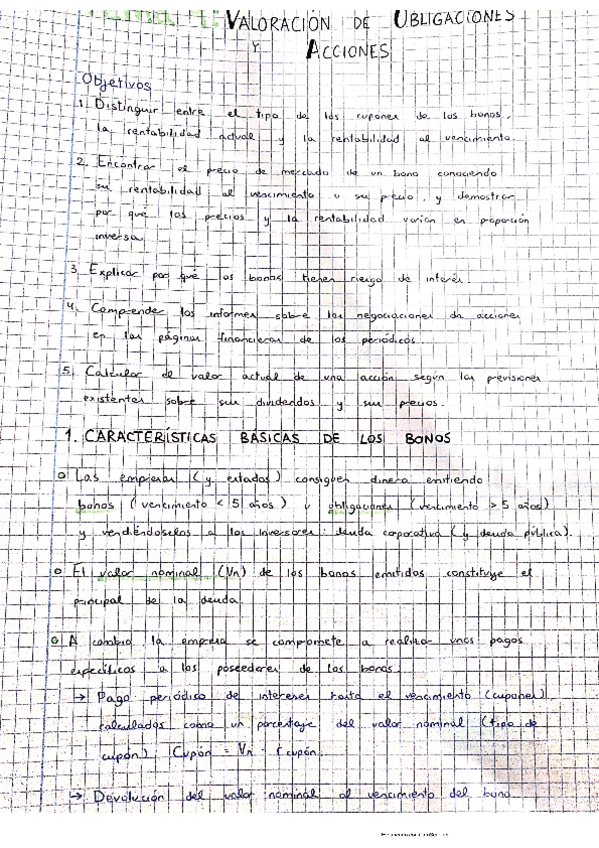 TEMA 4: VALORACIÓN DE OBLIGACIONES
Y ACCIONES
Objetivos
1. Distinguir entre el tipo de los cupones de los bonos,
la rentabilidad actual y la rentabilidad al vencimiento.
2. Encontrar el precio de mercado de un bono conociendo
su rentabilidad al vencimiento o su precio, y demostrar
por qué los precios y la rentabilidad varían en proporción
inversa.
3. Explicar por qué los bonos tienen riesgo de interés.
4. Comprender los informes sobre las negociaciones de acciones
en las páginas financieras de los periódicos.
5. Calcular el valor actual de una acción según las previsiones
existentes sobre sus dividendos y sus precios.
1. CARACTERÍSTICAS BÁSICAS DE LOS BONOS
Las empresas (y estados) consiguen dinero emitiendo
bonos (vencimiento < 5 años) u obligaciones (vencimiento > 5 años)
y vendiéndoselos a los inversores: deuda corporativa (y deuda pública).
El valor nominal (Vn) de los bonos emitidos constituye el
principal de la deuda
A cambio la empresa se compromete a realizar unos pagos
específicos a los poseedores de los bonos.
→ Pago periódico de intereses hasta el vencimiento (cupones),
calculados como un porcentaje del valor nominal (tipo de
cupón) Cupón = Vn · r cupón.
↳ Devolución del valor nominal al vencimiento del bono.